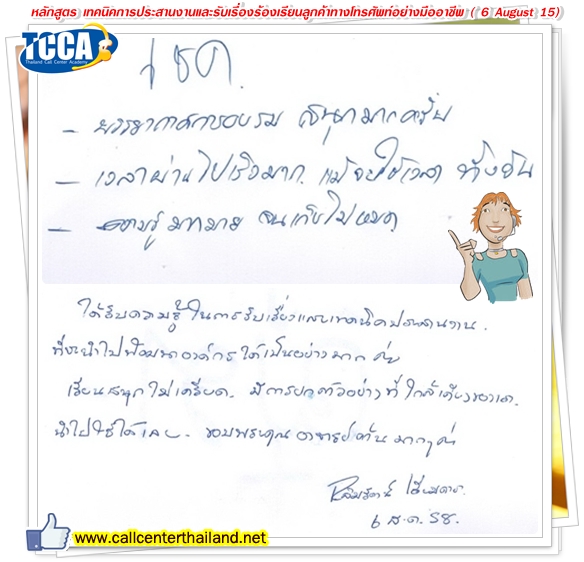 หลักสูตร เทคนิคการประสานงานและรับเรื่องร้องเรียนลูกค้าทางโทรศัพท์อย่างมืออาชีพ ( 6 August 15)
TCCA
Thailand Call Center Academy
โชค.
- บรรยากาศการอบรม สนุกมากครับ
- เวลาผ่านไปเร็วมาก. แม้จะใช้เวลา ทั้งวัน
- ความรู้มากมาย จนเก็บไม่หมด
ได้รับความรู้ในการรับเรื่องและเทคนิคประสานงาน.
ที่จะนำไปพัฒนาองค์กรได้เป็นอย่างมาก ค่ะ
เรียนสนุกไม่เครียด. มีการยกตัวอย่างที่ใกล้เคียง
นำไปใช้ได้เลย. ขอบพระคุณ อาจารย์ มากๆค่ะ
6 ส.ค. 58.
www.callcenterthailand.net